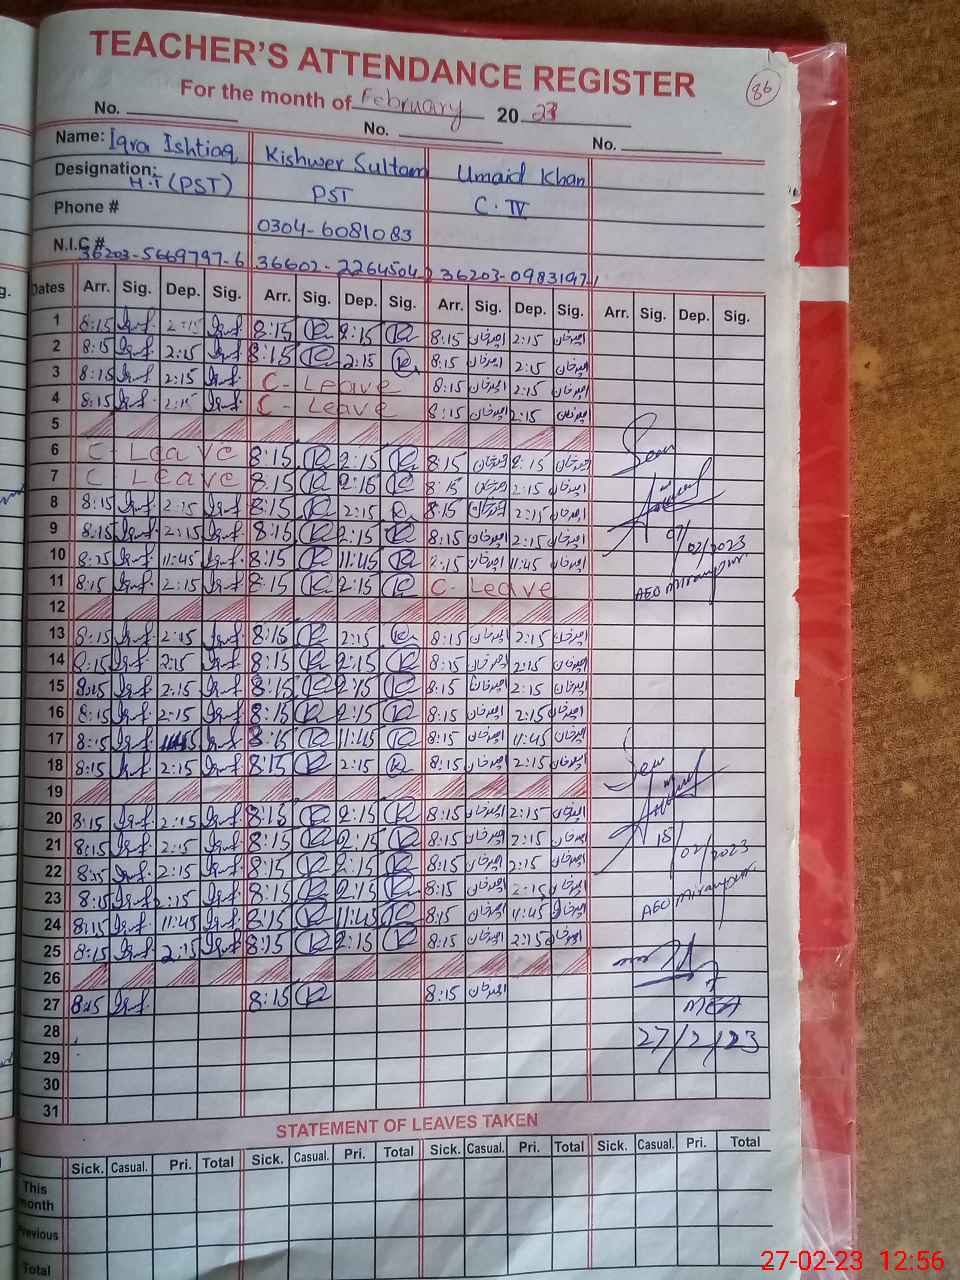 TEACHER'S ATTENDANCE REGISTER
86
For the month of February 2023
No. No. No.
Name: Iqra Ishtiaq Kishwer Sultana Umaid Khan
Designation: H.T (PST) PST C.IV
Phone # 0304-6081083
N.I.C # 36203-5669797-6 36602-2264504-2 36203-0983197-1
Dates Arr. Sig. Dep. Sig. Arr. Sig. Dep. Sig. Arr. Sig. Dep. Sig. Arr. Sig. Dep. Sig.
1 8:15 2:15 8:15 2:15 8:15 امیرخان 2:15 امیرخان
2 8:15 2:15 8:15 2:15 8:15 امیرخان 2:15 امیرخان
3 8:15 2:15 C- Leave 8:15 امیرخان 2:15 امیرخان
4 8:15 2:15 C- Leave 8:15 امیرخان 2:15 امیرخان
5
6 C- Leave 8:15 2:15 8:15 امیرخان 2:15 امیرخان
7 C Leave 8:15 2:15 8:15 امیرخان 2:15 امیرخان
8 8:15 2:15 8:15 2:15 8:15 امیرخان 2:15 امیرخان
9 8:15 2:15 8:15 2:15 8:15 امیرخان 2:15 امیرخان
10 8:15 11:45 8:15 11:45 امیرخان 11:45 امیرخان
07/02/2023
11 8:15 2:15 8:15 2:15 C- Leave
AEO Miranpur.
12
13 8:15 2:15 8:15 2:15 8:15 امیرخان 2:15 امیرخان
14 8:15 2:15 8:15 2:15 8:15 امیرخان 2:15 امیرخان
15 8:15 2:15 8:15 2:15 8:15 امیرخان 2:15 امیرخان
16 8:15 2:15 8:15 2:15 8:15 امیرخان 2:15 امیرخان
17 8:15 11:45 8:15 11:45 8:15 امیرخان 11:45 امیرخان
18 8:15 2:15 8:15 2:15 8:15 امیرخان 2:15 امیرخان
19
20 8:15 2:15 8:15 2:15 8:15 امیرخان 2:15 امیرخان
21 8:15 2:15 8:15 2:15 8:15 امیرخان 2:15 امیرخان
15/02/2023
22 8:15 2:15 8:15 2:15 8:15 امیرخان 2:15 امیرخان
23 8:15 2:15 8:15 2:15 8:15 امیرخان 2:15 امیرخان
AEO Miranpur.
24 8:15 11:45 8:15 11:45 8:15 امیرخان 11:45 امیرخان
25 8:15 2:15 8:15 2:15 8:15 امیرخان 2:15 امیرخان
26
27 8:15 8:15 8:15 امیرخان
MEA
28 27/2/23
29
30
31
STATEMENT OF LEAVES TAKEN
Sick. Casual. Pri. Total Sick. Casual. Pri. Total Sick. Casual. Pri. Total Sick. Casual. Pri. Total
This month
Previous
Total
27-02-23 12:56